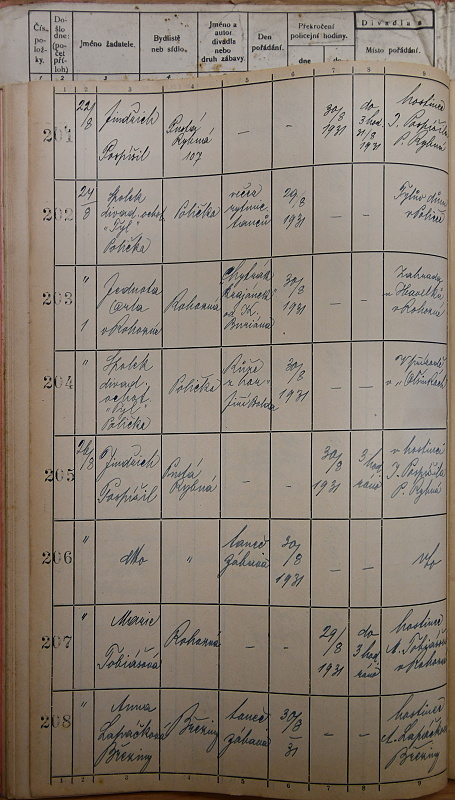 Čís. polož- ky.
Do- šlo dne: (po- čet pří- loh)
Jméno žadatele.
Bydliště neb sídlo.
Jméno a autor divadla nebo druh zábavy.
Den pořádání.
Překročení policejní hodiny.
dne
do
Divadla a
Místo pořádání.
1 2 3 4 5 6 7 8 9
201
22/8
Jindřich
Pospíšil
Pustá
Rybná
107
-
-
30/8
1931
do
3 hod.
31/8
1931
hostinec
J. Pospíšila
P. Rybná
202
24/8
Spolek
divad. ochot.
"Tyl"
Polička
Polička
večer
rytmic.
tanců
29/8
1931
-
-
Tylův dům
v Poličce
203
"
1
Jednota
Orla
v Rohozné
Rohozná
od K.
30/8
1931
-
-
Zahrada
u Havelků
v Rohozné
204
"
Spolek
divad.
ochot.
"Tyl"
Polička
Polička
Růže
30/8
1931
-
-
v "
205
26/8
Jindřich
Pospíšil
Pustá
Rybná
-
-
30/8
1931
3 hod.
ráno
v hostinci
J. Pospíšila
P. Rybná
206
"
dtto
"
taneč.
zábava
30/8
1931
-
-
207
"
Marie
Tobiášová
Rohozná
-
-
29/8
1931
do
3 hod.
ráno
hostinec
M. Tobiášové
v Rohozné
208
"
Anna
Lapáčková
Březiny
Březiny
taneč.
zábava
30/8
31
-
-
hostinec
A. Lapáčkové
Březiny
1 2 3 4 5 6 7 8 9